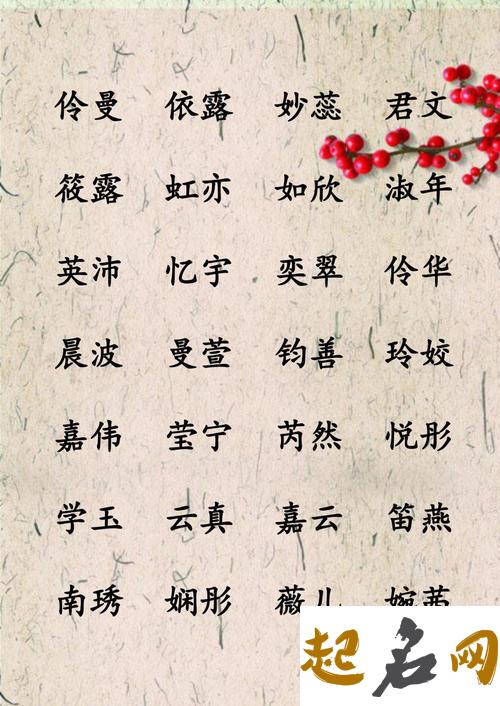 伶曼 依露 妙蕊 君文
筱露 虹亦 如欣 淑年
英沛 忆宇 奕翠 伶华
晨波 曼萱 钧善 玲姣
嘉伟 莹宁 芮然 悦彤
学玉 云真 嘉云 笛燕
南琇 娴彤 薇儿 婉茜
起名网